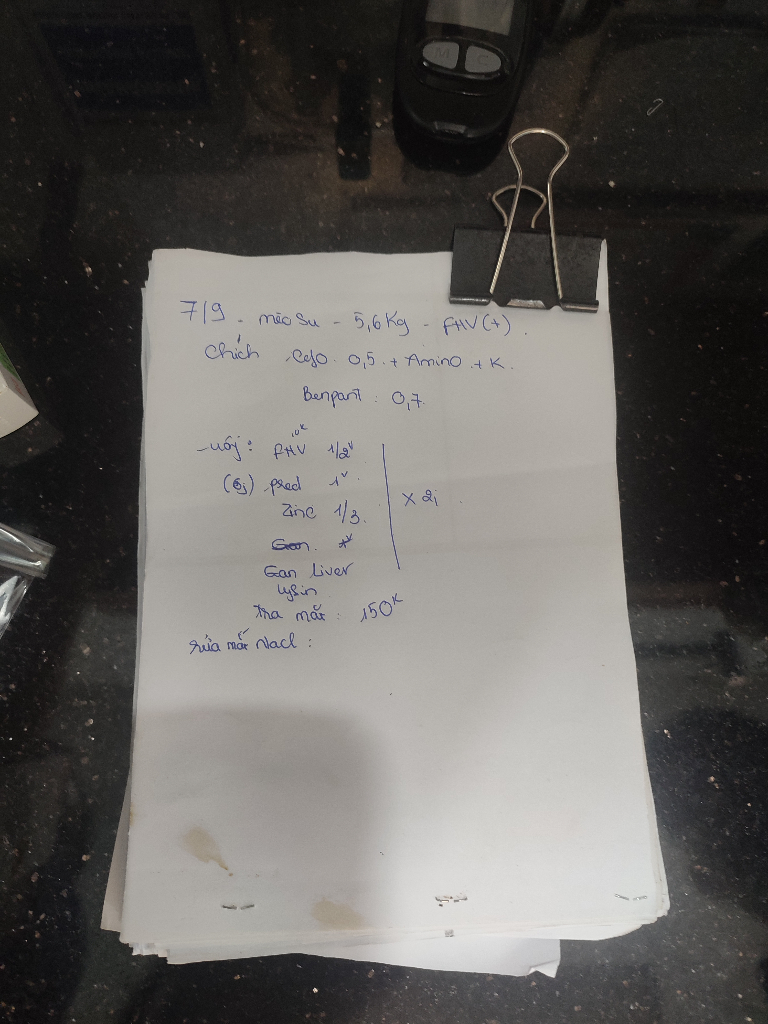 7/9 - mèo Su - 5,6 Kg - FHV (+).
Chích Cefo 0,5 + Amino + K.
Benpart : 0,7
- uốj : FHV 1/2ᵛ
(5j) pred 1ᵛ
Zinc 1/3.
x 2j
Gan Liver
Lysin
tra mắt : 150ᴷ
rửa mắt Nacl :
M C